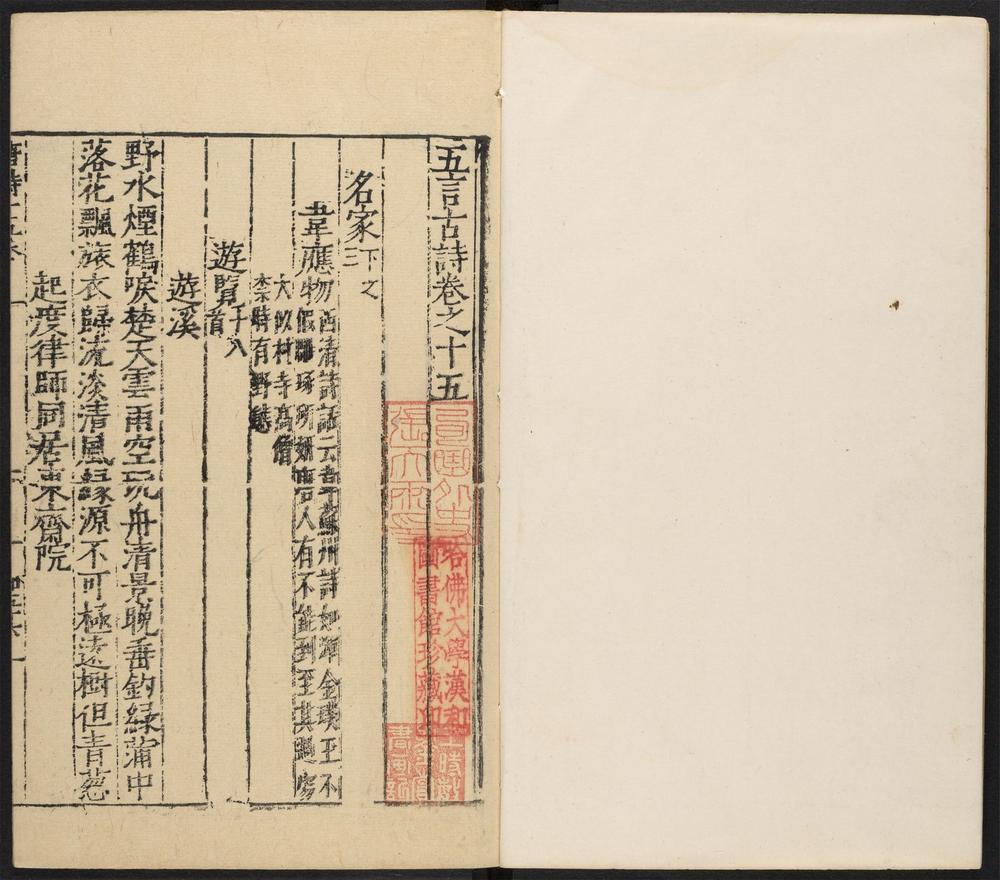 五言古詩卷之十五
名家下之三
韋應物西清詩話云韋蘇州詩如渾金璞玉不
假雕琢成妍唐人有不能到至其過處
大似村寺高僧
柰時有野態
遊覽十八首
遊溪
野水煙鶴唳楚天雲雨空玩舟清景晚垂釣綠蒲中
落花飄旅衣歸流淡清風緣源不可極遠樹但青蔥
起度律師同居東齋院
哈佛大學漢和
圖書館珍藏印